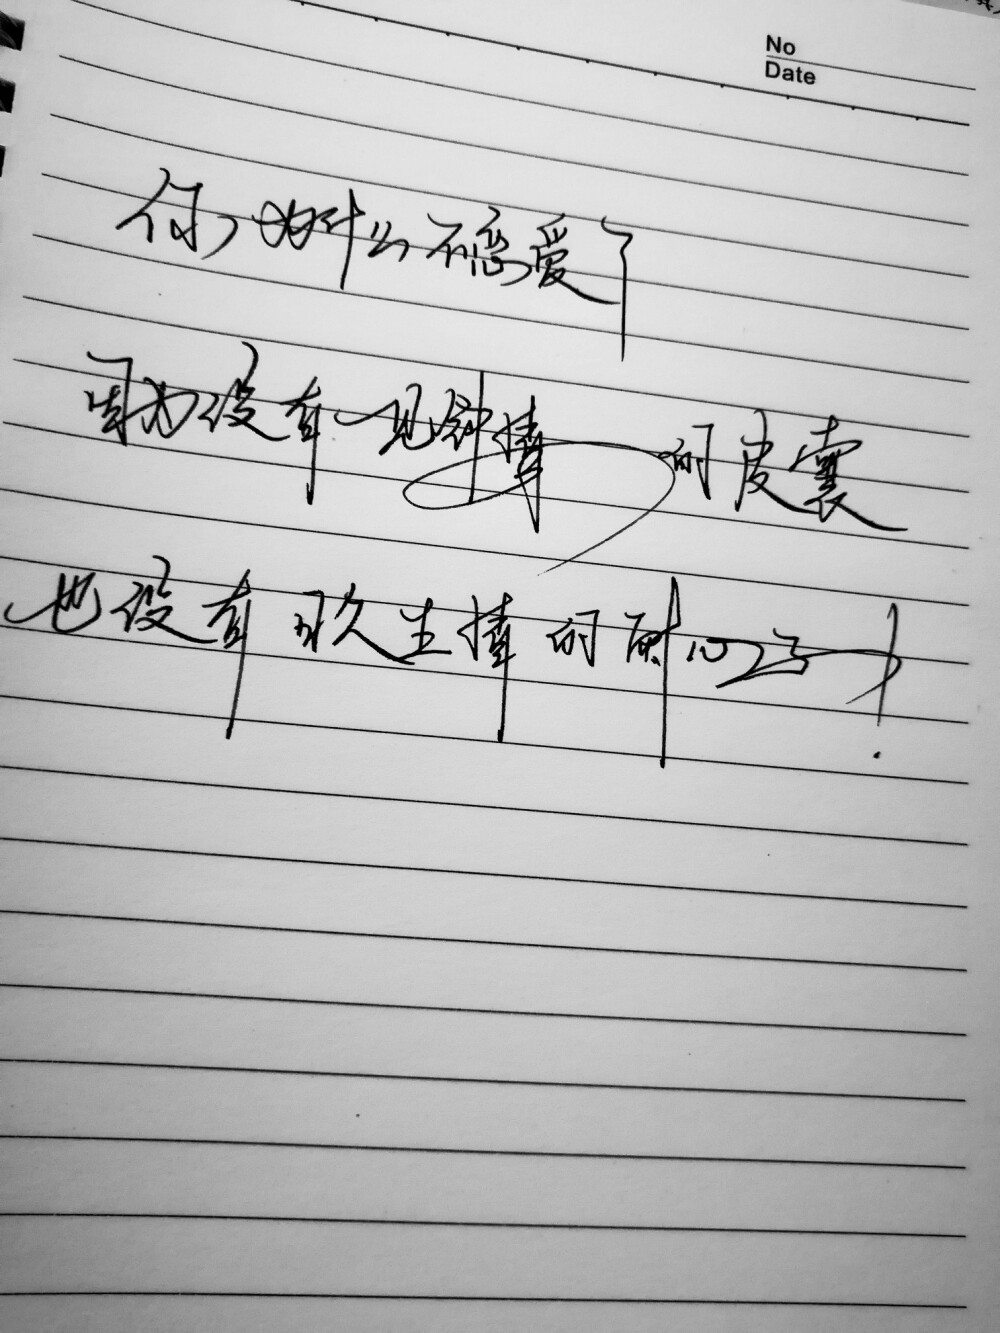 No
Date
你为什么不恋爱了
因为没有一见钟情的皮囊
也没有日久生情的耐心了!